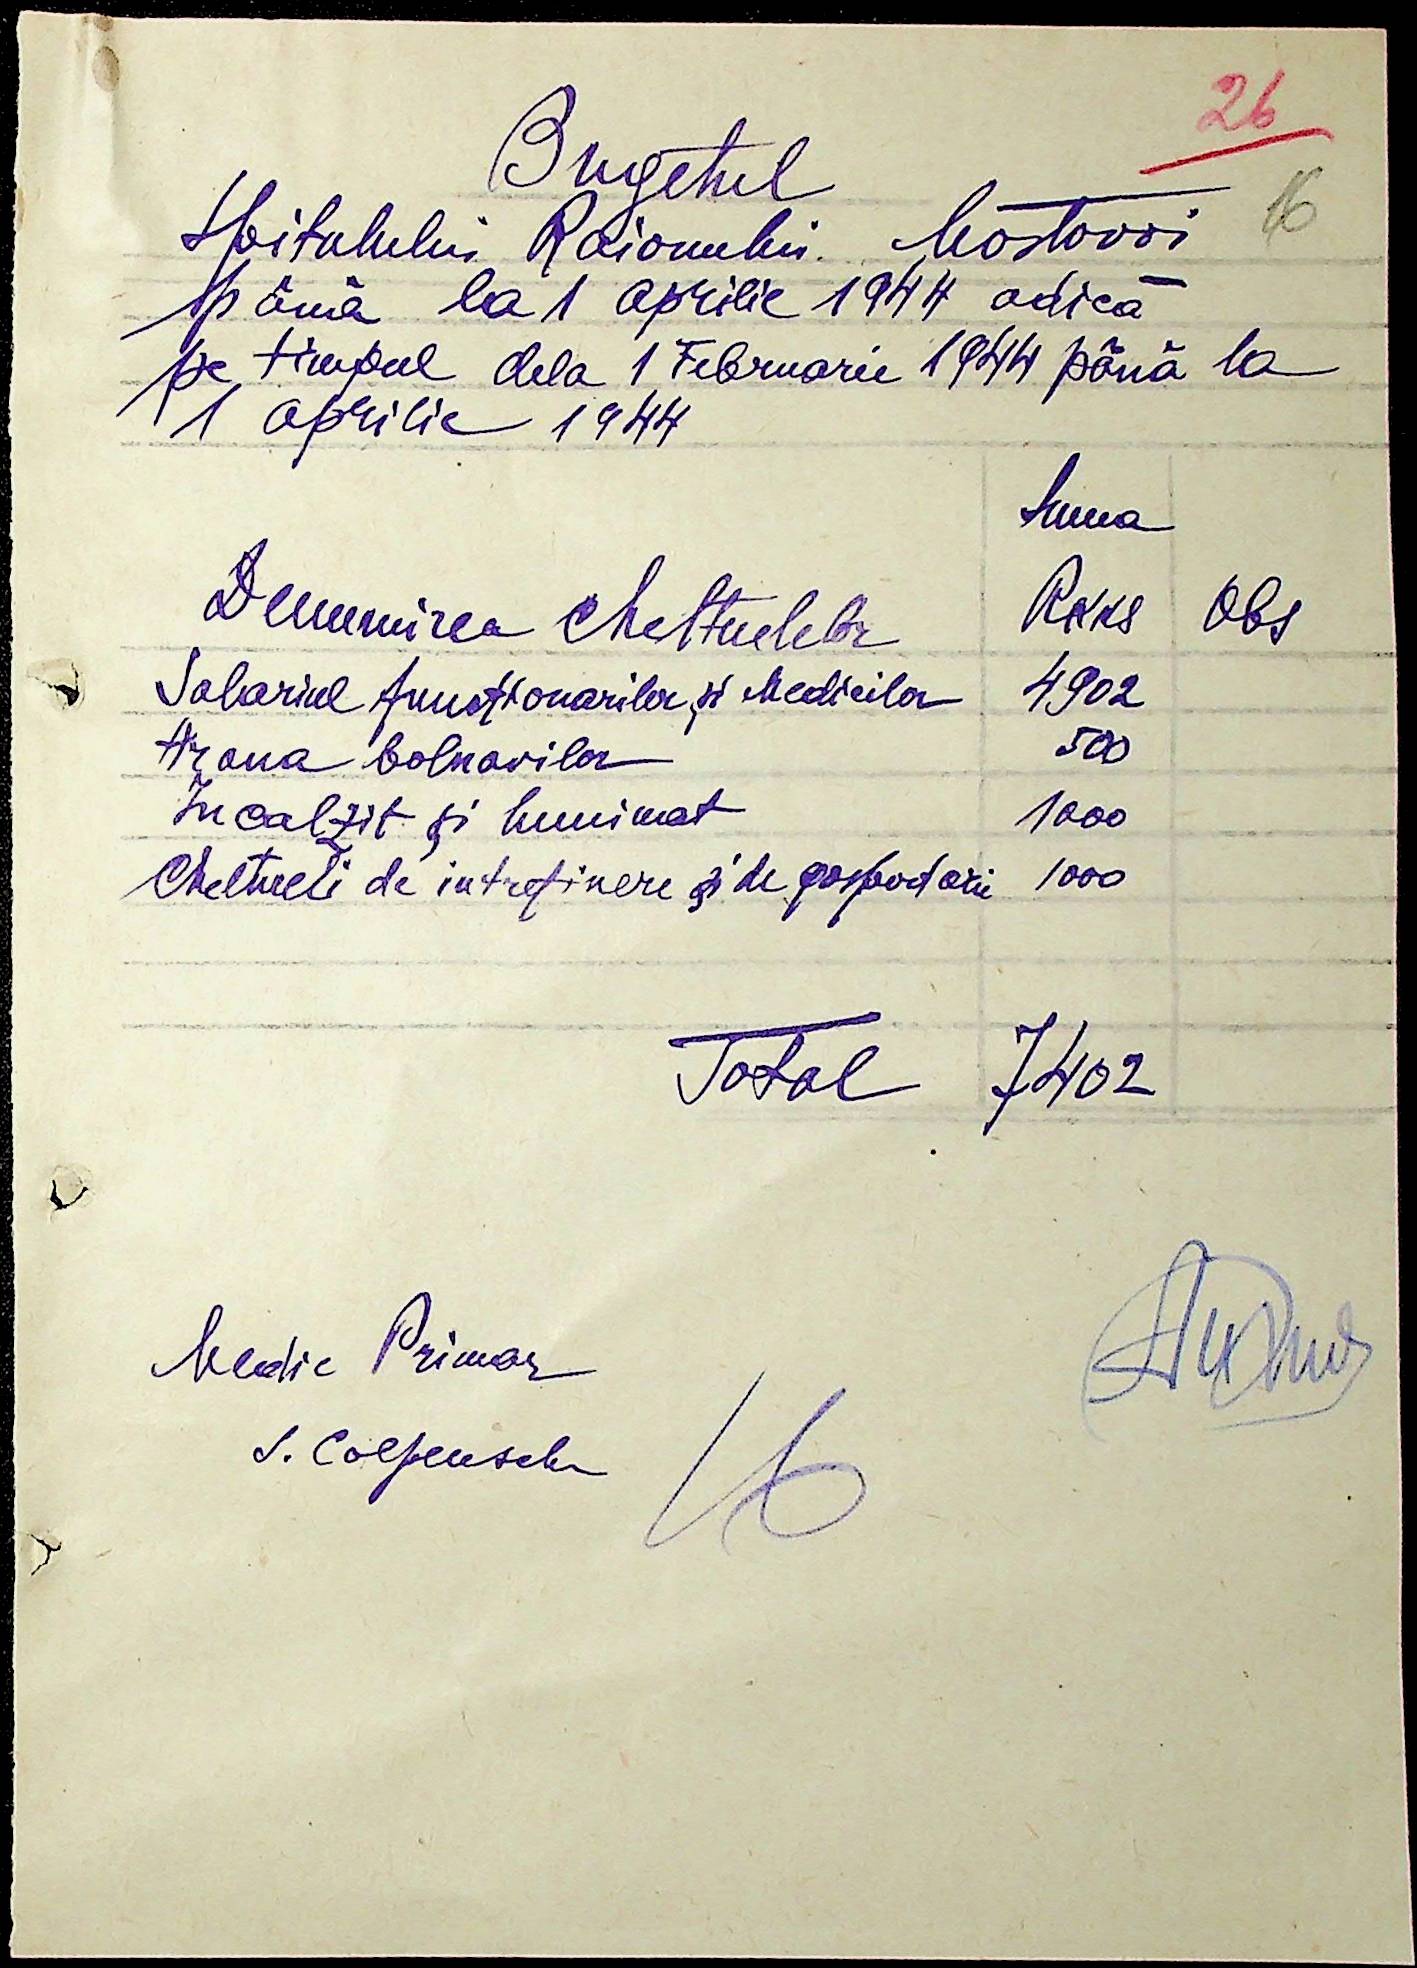 26
16
Bugetul
Spitalului Raionului Mostovoi
până la 1 Aprilie 1944 adică
pe timpul dela 1 Februarie 1944 până la
1 Aprilie 1944
Suma
Denumirea Cheltuelelor RKKS Obs
Salariul funcționarilor și Medicilor 4902
Hrana bolnavilor 500
Incalzit și luminat 1000
Cheltueli de intreținere și de gospodarie 1000
Total 7402
Medic Primar
S.
16